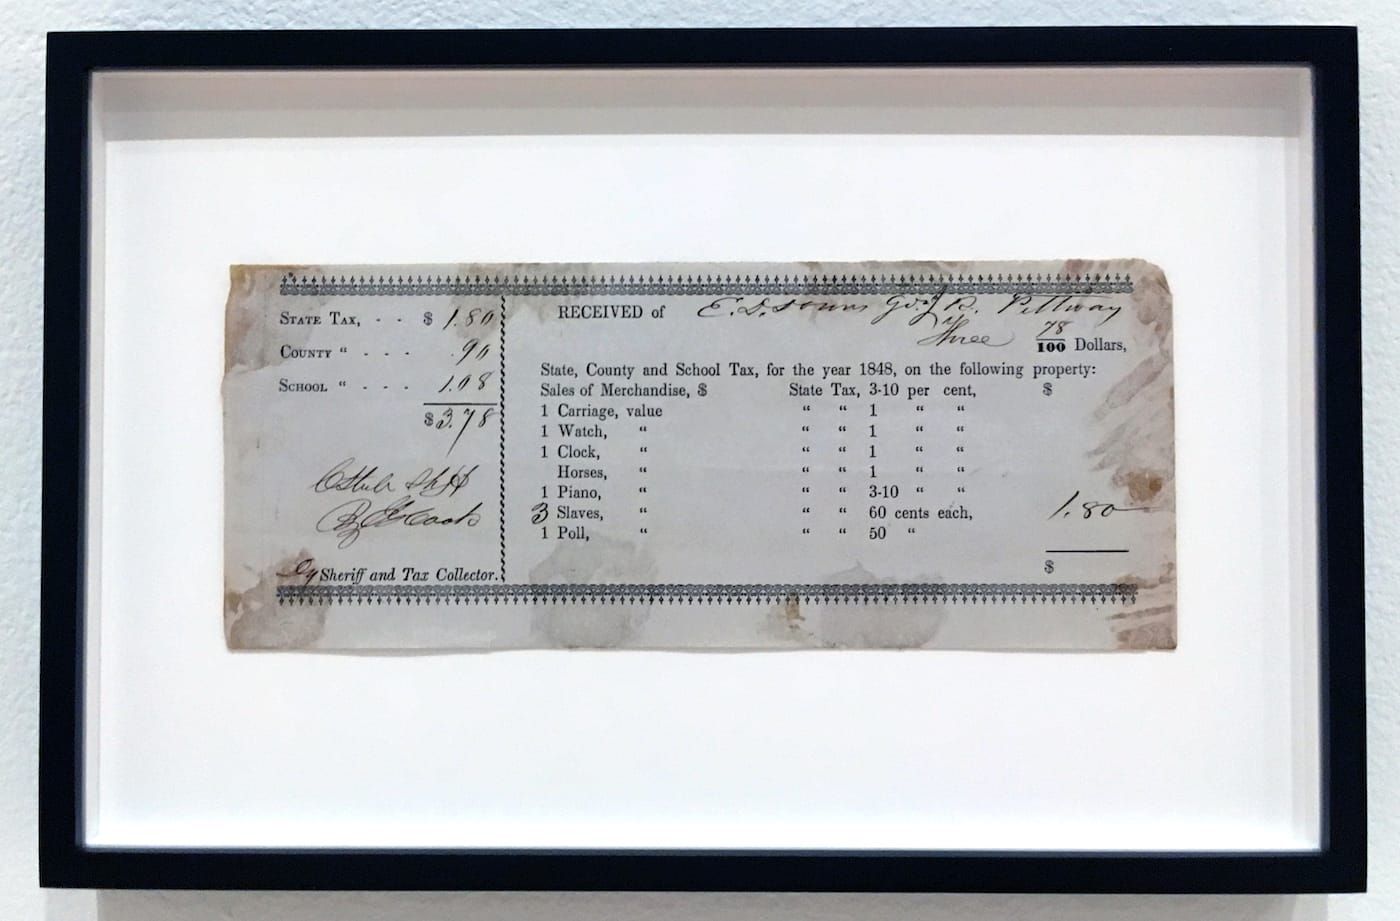 STATE TAX, - - $ 1.80
COUNTY “ - - - .90
SCHOOL “ - - - 1.08
$ 3.78
Sheriff and Tax Collector.
RECEIVED of E. D.
Three 78/100 Dollars,
State, County and School Tax, for the year 1848, on the following property:
Sales of Merchandise, $ State Tax, 3-10 per cent, $
1 Carriage, value “ “ 1 “ “
1 Watch, “ “ “ 1 “ “
1 Clock, “ “ “ 1 “ “
Horses, “ “ “ 1 “ “
1 Piano, “ “ “ 3-10 “ “
3 Slaves, “ “ “ 60 cents each, 1.80
1 Poll, “ “ “ 50 “
$